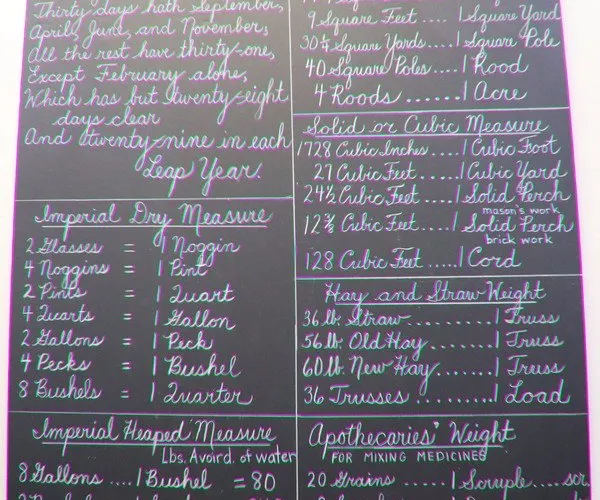 Thirty days hath September,
April, June, and November,
All the rest have thirty-one,
Except February alone,
Which has but twenty-eight
days clear
And twenty-nine in each
Leap Year.
Imperial Dry Measure
2 Glasses = 1 Noggin
4 Noggins = 1 Pint
2 Pints = 1 Quart
4 Quarts = 1 Gallon
2 Gallons = 1 Peck
4 Pecks = 1 Bushel
8 Bushels = 1 Quarter
Imperial Heaped Measure
Lbs. Avoird. of water
8 Gallons ....1 Bushel = 80
9 Square Feet ....1 Square Yard
30¼ Square Yards ....1 Square Pole
40 Square Poles ....1 Rood
4 Roods ......1 Acre
Solid or Cubic Measure
1728 Cubic Inches ....1 Cubic Foot
27 Cubic Feet ....1 Cubic Yard
24½ Cubic Feet ....1 Solid Perch
mason's work
Cubic Feet ....1 Solid Perch
brick work
128 Cubic Feet .....1 Cord
Hay and Straw Weight
36 lb. Straw..........1 Truss
56 lb. Old Hay........1 Truss
60 lb. New Hay.......1 Truss
36 Trusses ..........1 Load
Apothecaries' Weight
FOR MIXING MEDICINES
20 Grains .....1 Scruple.....scr